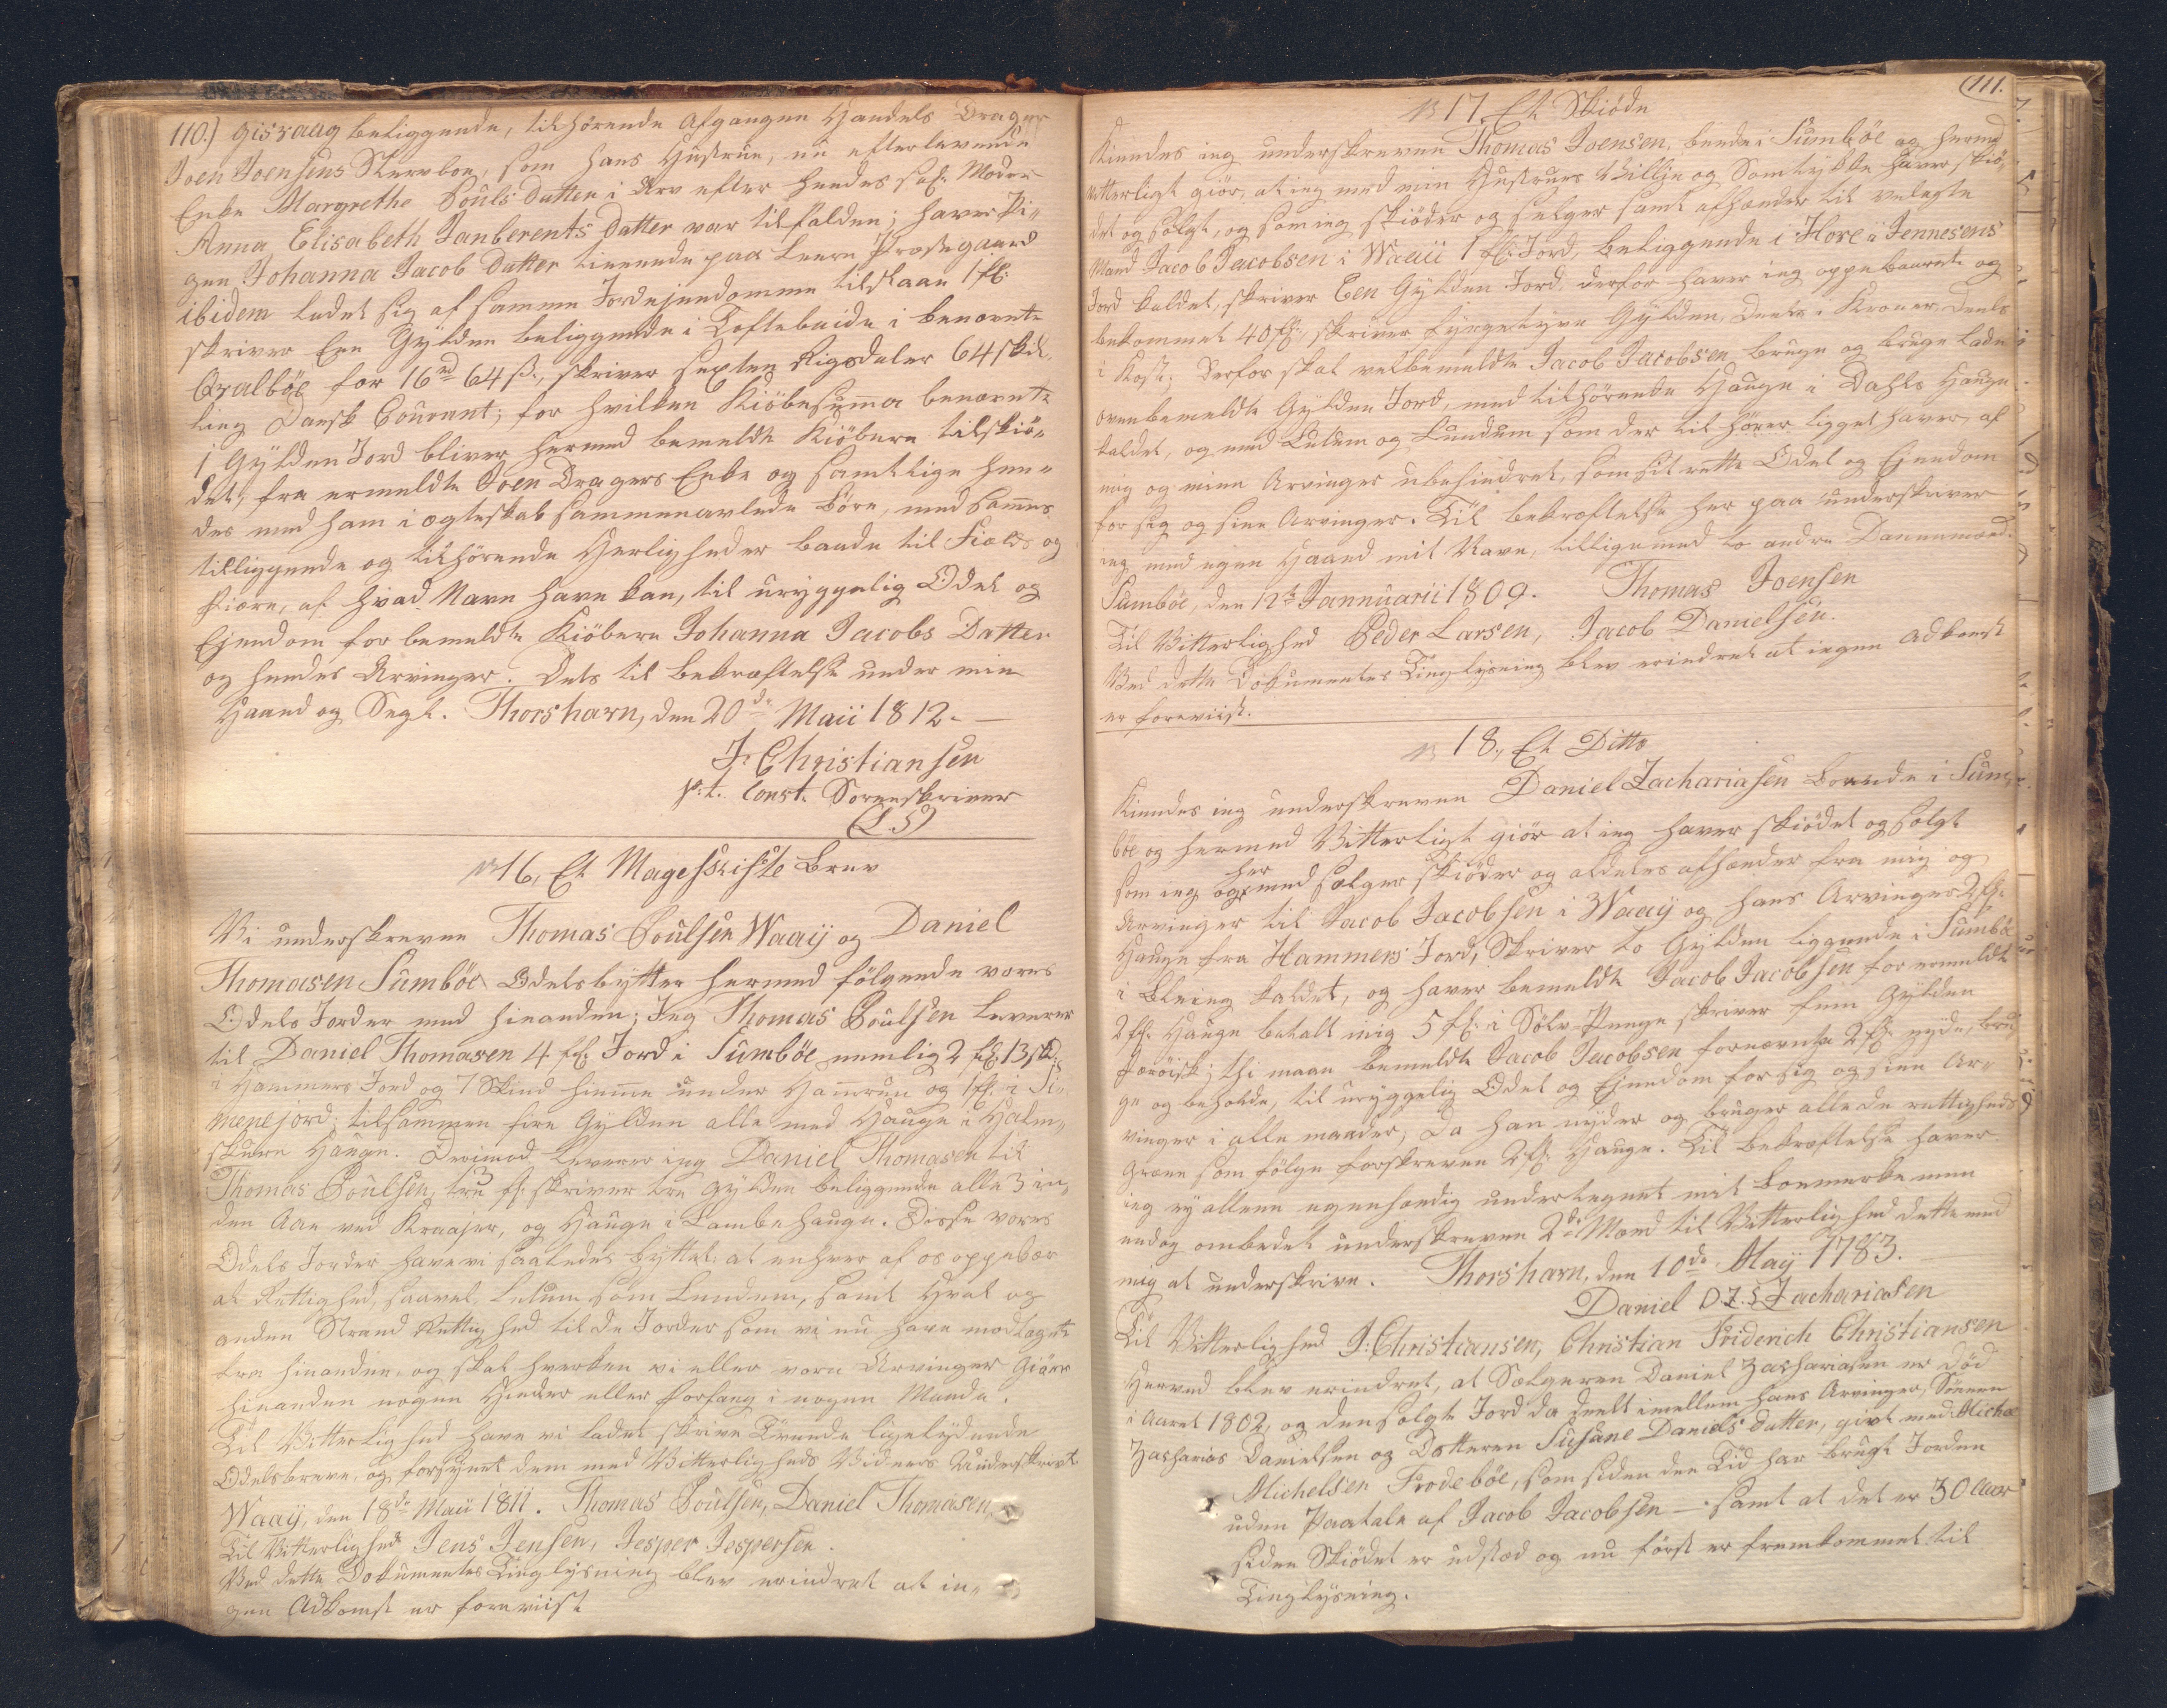 110.) Gisraag beliggende, tilhørende Afgangen Handels Drager
Joen Joensens Stervboe, som hans Hustrue, nu efterlevende
Enke Margrethe Pouls Datter i Arv efter hendes sal: Moder
Anna Elisabeth Janberents Datter var tilfalden; haver Pi„
gen Johanna Jacob Datter tienende paa Præstegaard
ibidem ladet sig af samme Jordejendomme tilslaae 1 fl:
skriver Een Gylden beliggende i Toftebeide i benævnte
Qvalbøe for 16 rd 64 ß., skriver sexten Rigsdaler 64 skil„
ling Dansk Courant; for hvilken Kiöbesum̄a benævnte
1 Gylden Jord bliver hermed bemeldte Kiöbere tilskiö„
det, fra ermeldte Joen Dragers Enke og samtlige hen„
des med ham i ægteskab sammenavlede Börn, med sam̄es
tilliggende og tilhörende Herligheder baade til Fields og
Fiære, af hvad Navn have kan, til uryggelig Odel og
Ejendom for bemeldte Kiöbere Johanna Jacobs Datter
og hendes Arvinger. Dets til Bekræftelse under min
Haand og Segl. Thorshavn, den 20de Maii 1812. —
J. Christiansen
p: t. Const. Sorenskriver
(L. S)
№ 16, Et Mageskifte Brev
Vi underskrevne Thomas Poulsen Waaÿ og Daniel
Thomasen Sumböe Odelsbytter hermed fölgende vores
Odels Jorder med hinanden; Jeg Thomas Poulsen Leverer
til Daniel Thomasen 4 fl: Jord i Sumböe nemlig 2 fl: 13 skd:
i Hammers Jord og 7 Skind hiem̄e under Ham̄run og 1 fl: i Si„
menejord; tilsammen fire Gylden alle med Hauge i Halm„
skure Hauge. Derimod Leverer ieg Daniel Thomasen til
Thomas Poulsen, tre 3 fl: skriver tre Gylden beliggende alle 3 in„
den Aae ved Kraajer, og Hauge i Lambehauge. Disse vores
Odels Jorder have vi saaledes byttet: at enhver af os oppebær
al Rettighed, saavel Lutum som Lundum, samt Hval og
anden Strand Rettighed til de Jorder som vi nu have modtaget
fra hinanden, og skal hverken vi eller vore Arvinger Giöre
hinanden nogen Hinder eller Forfang i nogen Maade.
Til Vitterlighed have vi ladet skrive Tvende ligelydende
Odelsbreve, og forsynet dem med Vitterligheds Vidners Underskrivt
Waaÿ, den 18de Maii 1811. Thomas Poulsen, Daniel Thomasen,
Til Vitterlighed Jens Jensen, Jesper Jespersen.
Ved dette Dokumentes Tinglysning blev erindret at in„
gen Adkomst er foreviist
111.
№ 17. Et Skiöde
Kiendes ieg underskreven Thomas Joensen, boende i Sumböe og hermed
vitterligt giör, at ieg med min Hustrues Villje og Samtykke haver skiö„
det og solgt, og som ieg skiöder og selger samt afhænder til velagte
Mand Jacob Jacobsen i Waaii 1 fl: Jord, beliggende i Hore i Jennesens
Jord kaldet, skriver Een Gylden Jord, derfor haver ieg oppebaaret og
bekommet 40 fl:, skriver fyrgetyve Gylden, deels i Kroner, deels
i Kost. Derfor skal velbemeldte Jacob Jacobsen bruge og bruge lade
ovenbemeldte Gylden Jord, med tilhörende Hauge i Dahls Hauge
kaldet, og med Lutum og Lundum som der til hörer ligget haver, af
mig og mine Arvinger ubehindret, som sit rette Odel og Ejendom
for sig og sine Arvinger. Til bekræftelse her paa underskriver
ieg med egen Haand mit Navn, tilligemed to andre Dannemænd.
Sumböe, den 12te Jannuarii 1809. Thomas Joensen
Til Vitterlighed Peder Larsen, Jacob Danielsen.
Ved dette Dokumentes Tinglysning blev erindret at ingen Adkomst
er foreviist.
№ 18., Et Ditto
Kiendes ieg underskreven Daniel Zachariasen Boende i Sum„
böe og hermed Vitterligt giör at ieg haver skiödet og solgt
som ieg og hermed sælger skiöder og aldeles afhænder fra mig og
Arvinger til Jacob Jacobsen i Waaÿ og hans Arvinger 2 fl:
Hauge fra Hammers Jord, Skriver to Gylden liggende i Sumböe
i Bleing kaldet, og haver bemeldte Jacob Jacobsen for ermeldte
2 fl: Hauge betalt mig 5 fl: i Sölv Penge skriver fem Gylden
Færöisk; thi maae bemeldte Jacob Jacobsen fornævnte 2 fl: nyde, bru„
ge og beholde, til uryggelig Odel og Ejendom for sig og sine Ar„
vinger i alle maader, da han nyder og bruger alle de rettigheds
Græne som fölge forskreven 2 fl: Hauge. Til bekræftelse haver
ieg ey allene egenhændig undertegnet mit Boemerke men
endog ombedet underskrevne 2de Mænd til Vitterlighed dette med
mig at underskrive. Thorshavn, den 10de Maÿ 1783.
Daniel D. Z. S Zachariasen
Til Vitterlighed J: Christiansen, Christian Friderich Christiansen
Herved blev erindret, at Sælgeren Daniel Zachariasen er död
i Aaret 1802, og den solgte Jord da deelt imellem hans Arvinger, Sönnen
Zacharias Danielsen og Dotteren Susane Daniels datter, givt med Michel
Michelsen Frodeböe, som siden den Tid har brugt Jorden
uden Paatale af Jacob Jacobsen — samt at det er 30 Aar
siden Skiödet er udstæd og nu först er fremkommet til
Tinglysning.